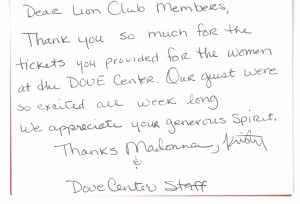 Dear Lion Club Members,
Thank you so much for the
tickets you provided for the women
at the DOVE Center. Our guist were
so excited all week long.
We appreciate your generous spirit.
Thanks Madonna, Kristy
&
Dove Center Staff